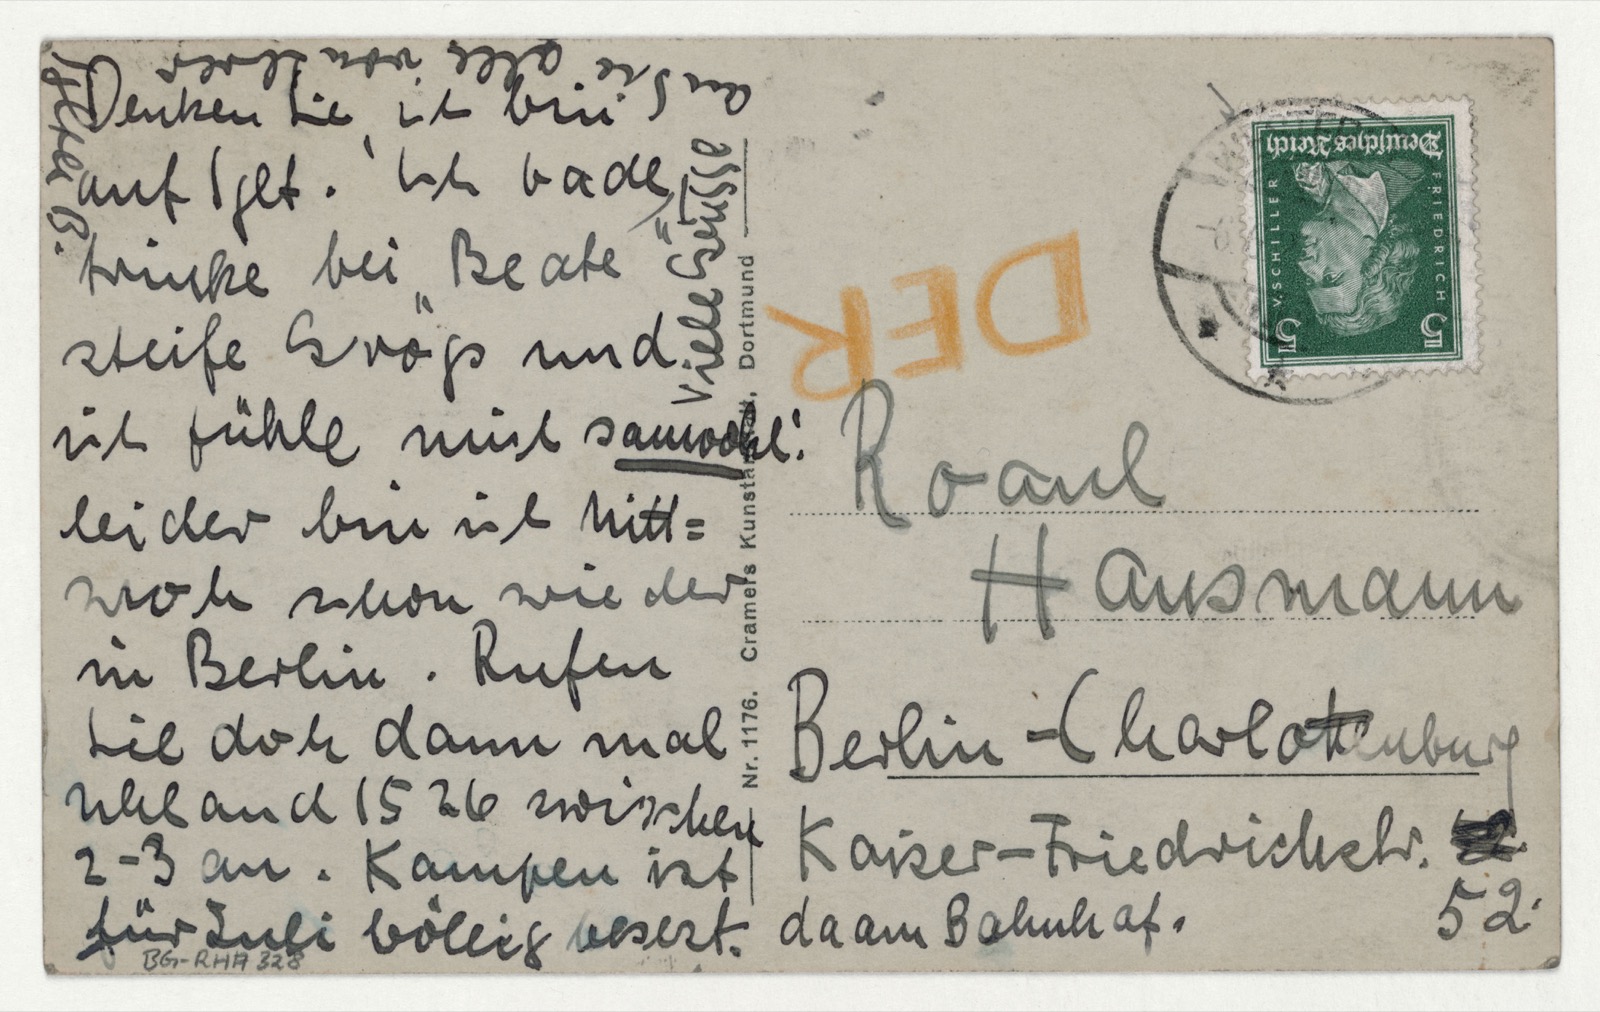 Denken Sie, ich bin
auf Sylt. Ich bade,
trinke bei Beate
steife Grögs und
ich fühle mich sauwohl!
leider bin ich Mitt=
woch schon wieder
in Berlin. Rufen
Sie doch dann mal
Uhland 1526 zwischen
2-3 an. Kampen ist
für Juli völlig besezt.
Viele Grüsse
an Sie alle von Ihrer
B.
BG-RHA 328
Nr. 1176. Cramers Kunstanstalt, Dortmund
DER
Deutsches Reich
FRIEDRICH
V. SCHILLER
5 5
Raoul
Hausmann
Berlin-Charlottenburg
Kaiser-Friedrichstr.
52.
da am Bahnhof.